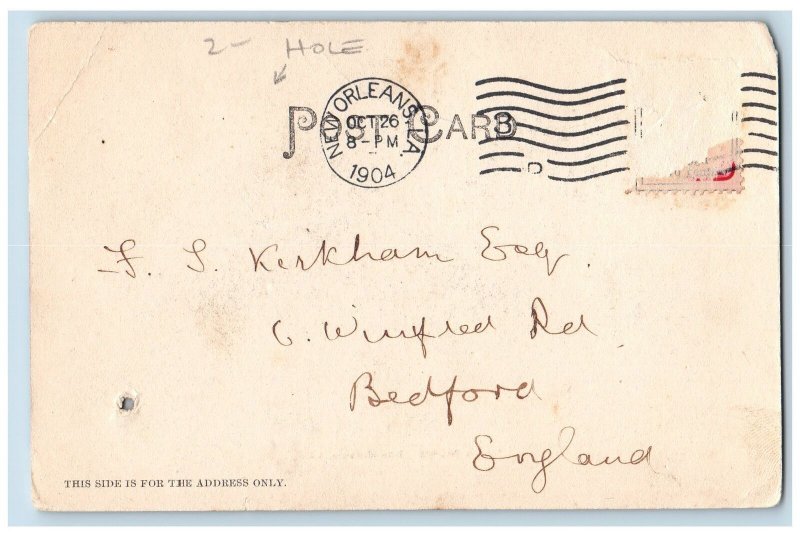 2- HOLE
POST CARD
NEW ORLEANS, LA.
OCT 26
8-PM
1904
3
D
F. S. Kirkham Esq.
6. Winifred Rd
Bedford
England
THIS SIDE IS FOR THE ADDRESS ONLY.